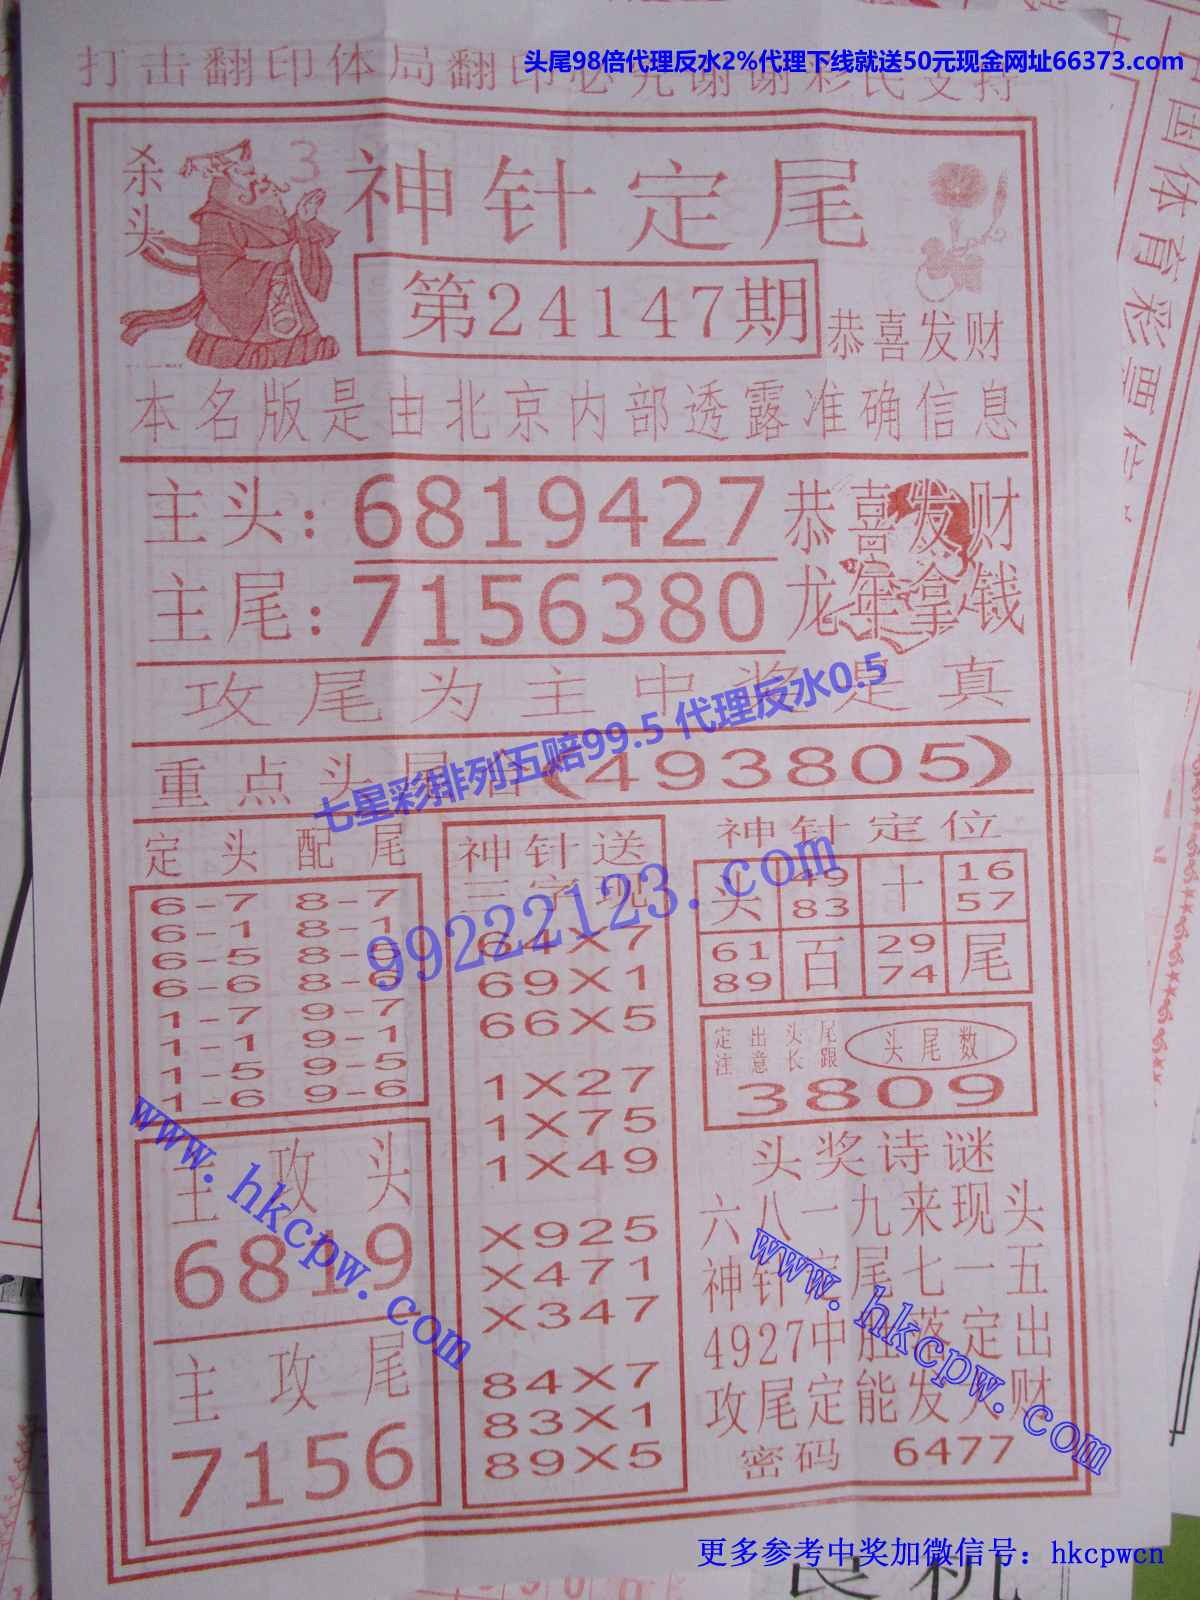 头尾98倍代理反水2%代理下线就送50元现金网址66373.com
打击翻印体局翻印必究谢谢彩民支持
杀头
3
神针定尾
第24147期
恭喜发财
本名版是由北京内部透露准确信息
主头：6819427
恭喜发财
主尾：7156380
龙年拿钱
攻尾为主中奖是真
七星彩排列五赔99.5 代理反水0.5
重点头尾合(493805)
定头配尾
6-7 8-7
6-1 8-1
6-5 8-5
6-6 8-6
1-7 9-7
1-1 9-1
1-5 9-5
1-6 9-6
神针送
三字现
64X7
69X1
66X5
1X27
1X75
1X49
X925
X471
X347
84X7
83X1
89X5
99222123.com
神针定位
头 49 十 16
83 57
61 百 29 尾
89 74
定出头尾
注意长跟
头尾数
3809
主攻头
6819
主攻尾
7156
头奖诗谜
六八一九来现头
神针定尾七一五
4927中胜落定出
攻尾定能发大财
密码 6477
www.hkcpw.com
www.hkcpw.com
更多参考中奖加微信号：hkcpwcn
中国体育彩票